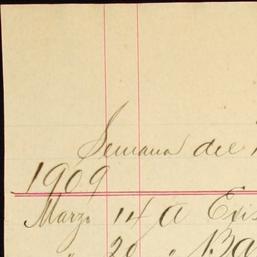 Semana del
1909
Marzo 14 a Exis
" 20 " Ba